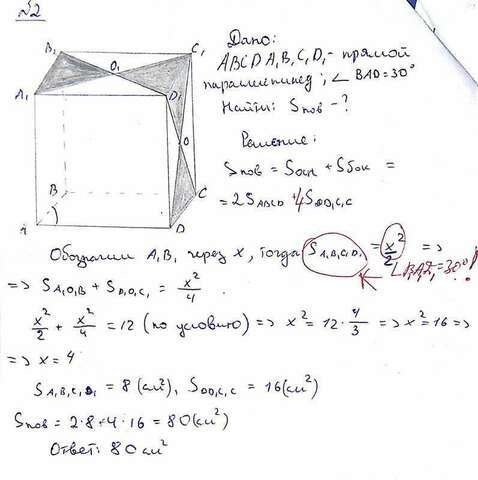 №2
B₁ C₁ O₁ A₁ D₁ O B C A D
Дано:
ABCD A₁B₁C₁D₁ - прямой
параллепипед; ∠ BAD = 30°
Найти: Sпов - ?
Решение:
Sпов = Sосн + Sбок =
= 2SABCD + 4SDD₁C₁C
Обозначим A₁B₁ через x, тогда SA₁B₁C₁D₁ = x²/2 =>
∠B₁A₁D₁ = 30°!
=> SA₁O₁B₁ + SD₁O₁C₁ = x²/4.
x²/2 + x²/4 = 12 (по условию) => x² = 12 · 4/3 => x² = 16 =>
=> x = 4
SA₁B₁C₁D₁ = 8 (см²), SDD₁C₁C = 16 (см²)
Sпов = 2·8 + 4·16 = 80 (см²)
Ответ: 80 см²